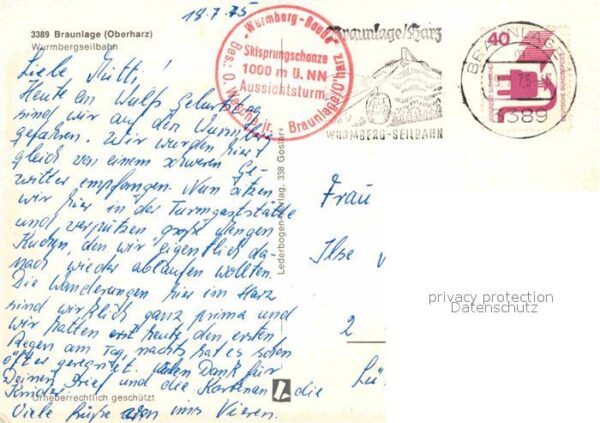 18.7.75
3389 Braunlage (Oberharz)
Wurmbergseilbahn
Liebe Mutti!
Heute an Wulfs Geburtstag
sind wir auf den Wurmberg
gefahren. Wir wurden hier
gleich von einem schweren Ge-
witter empfangen. Nun sitzen
wir hier in der Turmgaststätte
und verputzen große Mengen
Kuchen, den wir eigentlich da-
nach wieder ablaufen wollten.
Die Wanderungen hier im Harz
sind wirklich ganz prima und
wir hatten erst heute den ersten
Regen am Tag, nachts hat es schon
öfter geregnet. Vielen Dank für
Deinen Brief und die Karten an die
Kinder
Urheberrechtlich geschützt
Viele Grüße von uns Vieren.
"Wurmberg-Baude"
Skisprungschanze
1000 m ü. NN
Aussichtsturm
Bes.: O. jr. - Braunlage/O'harz
Lederbogen-Verlag, 338 Goslar
Braunlage/Harz
WURMBERG-SEILBAHN
BRAUNLAGE
75
3389
40
DEUTSCHE BUNDESPOST
Frau
Ilse
2
Lü
privacy protection
Datenschutz